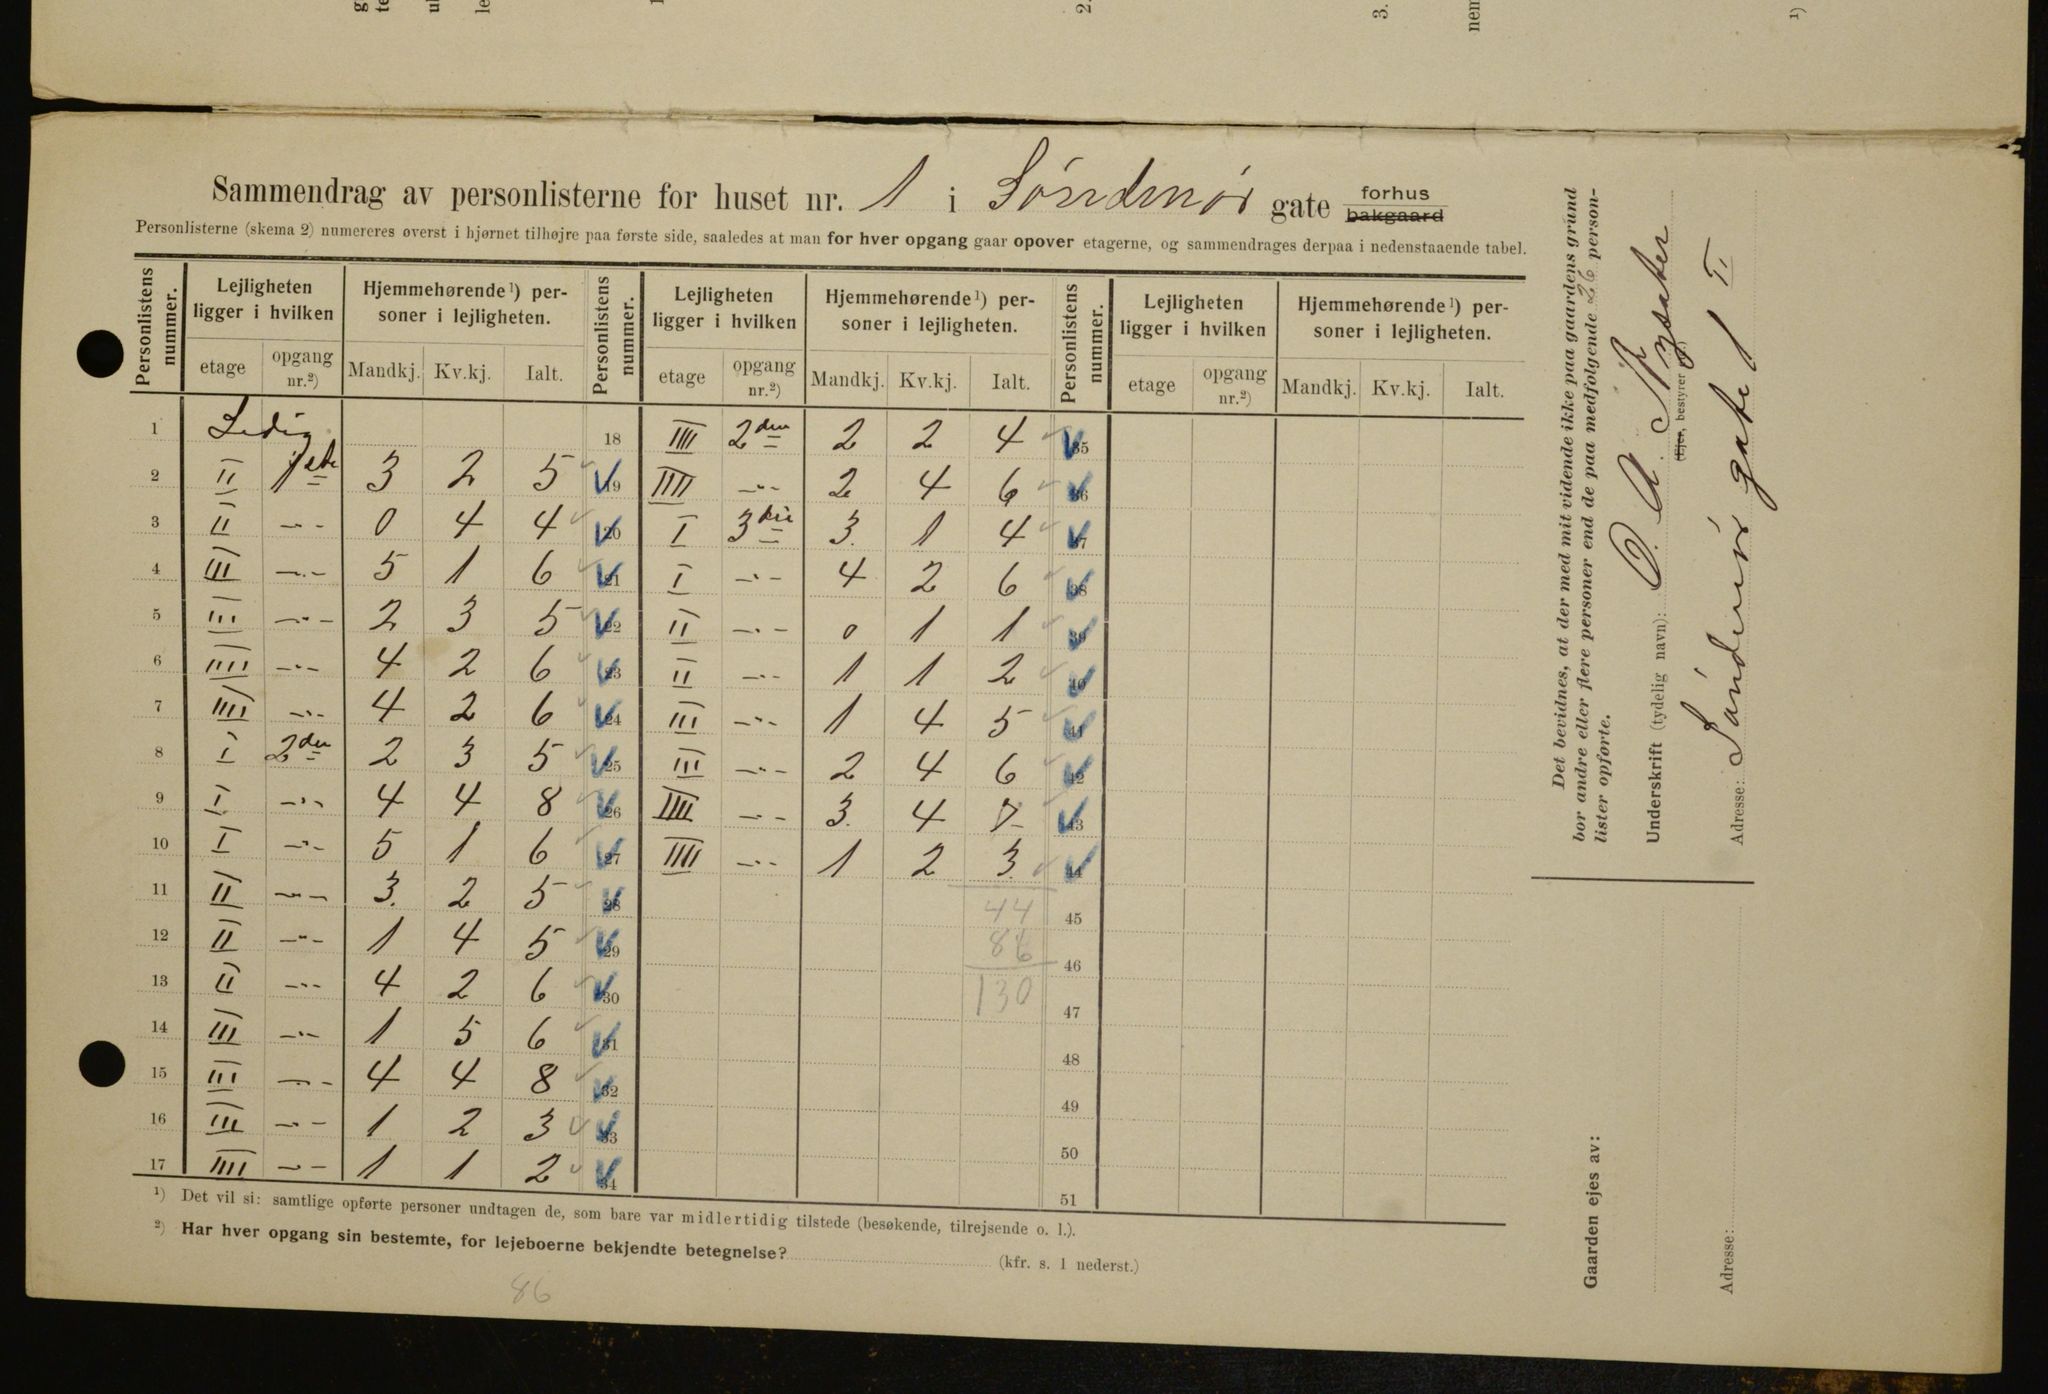 Sammendrag av personlisterne for huset nr. 1 i Søndmør gate forhus bakgaard
Personlisterne (skema 2) numereres øverst i hjørnet tilhøjre paa første side, saaledes at man for hver opgang gaar opover etagerne, og sammendrages derpaa i nedenstaaende tabel.
Personlistens nummer. Lejligheten ligger i hvilken Hjemmehørende ¹) personer i lejligheten. Personlistens nummer. Lejligheten ligger i hvilken Hjemmehørende ¹) personer i lejligheten. Personlistens nummer. Lejligheten ligger i hvilken Hjemmehørende ¹) personer i lejligheten.
etage opgang nr.²) Mandkj. Kv.kj. Ialt. etage opgang nr.²) Mandkj. Kv.kj. Ialt. etage opgang nr.²) Mandkj. Kv.kj. Ialt.
1 Ledig 18 IIII 2den 2 2 4 35
2 II 1ste 3 2 5 19 IIII -"- 2 4 6 36
3 II -"- 0 4 4 20 I 3die 3 1 4 37
4 III -"- 5 1 6 21 I -"- 4 2 6 38
5 III -"- 2 3 5 22 II -"- 0 1 1 39
6 IIII -"- 4 2 6 23 II -"- 1 1 2 40
7 IIII -"- 4 2 6 24 III -"- 1 4 5 41
8 I 2den 2 3 5 25 III -"- 2 4 6 42
9 I -"- 4 4 8 26 IIII -"- 3 4 7 43
10 I -"- 5 1 6 27 IIII -"- 1 2 3 44
11 II -"- 3 2 5 28 44 45
12 II -"- 1 4 5 29 86 46
13 II -"- 4 2 6 30 130 47
14 III -"- 1 5 6 31 48
15 III -"- 4 4 8 32 49
16 III -"- 1 2 3 33 50
17 IIII -"- 1 1 2 34 51
¹) Det vil si: samtlige opførte personer undtagen de, som bare var midlertidig tilstede (besøkende, tilrejsende o. l.).
²) Har hver opgang sin bestemte, for lejeboerne bekjendte betegnelse? (kfr. s. 1 nederst.)
86
Det bevidnes, at der med mit vidende ikke paa gaardens grund
bor andre eller flere personer end de paa medfølgende 26 person-
lister opførte.
Underskrift (tydelig navn): O. A.
(Ejer, bestyrer
Adresse: Søndmør gate 1 II
Gaarden ejes av:
Adresse: